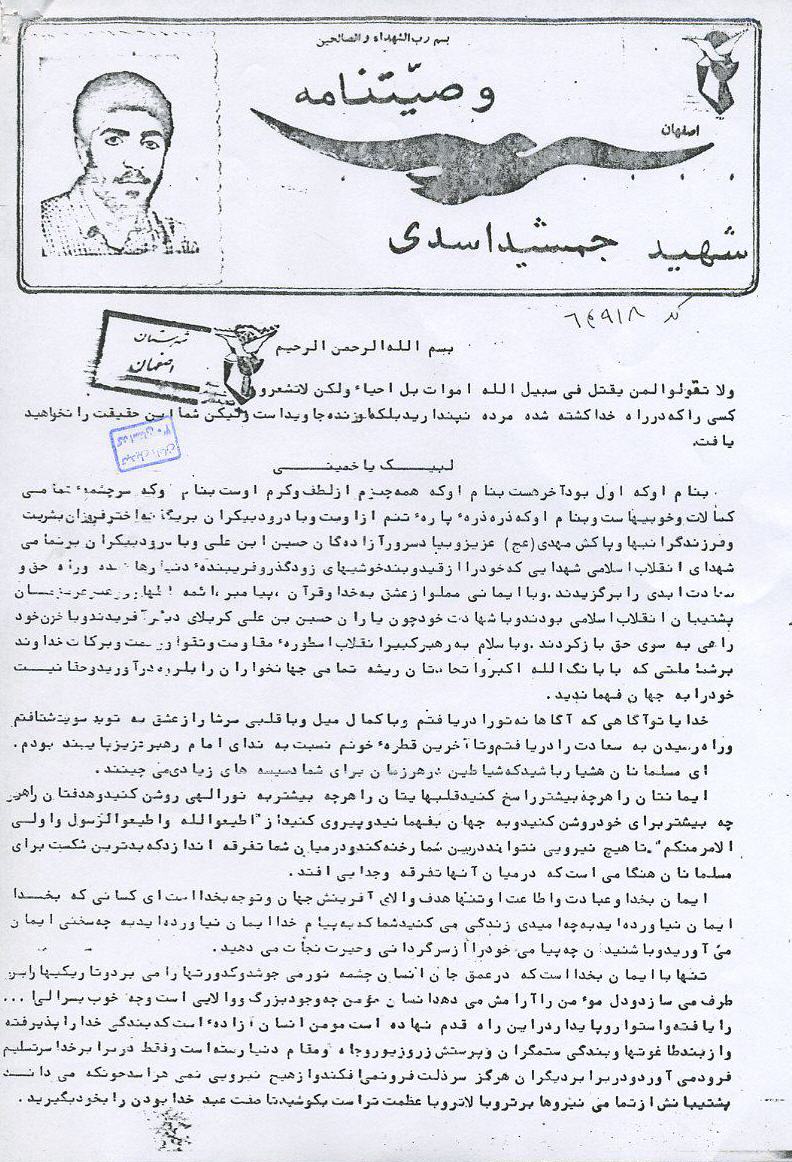 بسم رب الشهداء و الصالحین
وصیّتنامه
اصفهان
شهید جمشید اسدی
کد ۶۴۹۱۸
شهرستان
اصفهان
بسم الله الرحمن الرحیم
ولا تقولوا لمن یقتل فی سبیل الله اموات بل احیاء ولکن لاتشعرو
کسی را که در راه خدا کشته شده مرده نپندارید بلکه او زنده جاوید است ولیکن شما این حقیقت را نخواهید
یافت.
لبیک یا خمینی
بنام او که اول بود آخر هست بنام او که همه چیزم از لطف و کرم اوست بنام او که سرچشمهٔ تمامی
کمالات و خوبیهاست و بنام او که ذره ذرهٔ پارهٔ تنم از اوست و با درود بیکران بر یگانه اختر فروزان بشریت
و فرزند گرانبها و پاکش مهدی (عج) عزیز و بیاد سرور آزاده گان حسین ابن علی و با درود بیکران بر تمامی
شهدای انقلاب اسلامی شهدایی که خود را از قید و بند خوشیهای زودگذر و فریبندهٔ دنیا رها شده و راه حق و
سعادت ابدی را برگزیدند. و با ایمانی مملو از عشق به خدا و قرآن، پیامبر، ائمه اطهار و رهبر عزیزمان
پشتیبان انقلاب اسلامی بودند و با شهادت خود چون یاران حسین بن علی کربلای دیگر آفریدند و با خون خود
راهی به سوی حق باز کردند. و با سلام به رهبر کبیر انقلاب اسطورهٔ مقاومت و تقوا و رحمت و برکات خداوند
بر شما ملتی که با بانگ الله اکبر و اتحادتان ریشه تمامی جهانخواران را بلرزه درآورید و حقانیت
خود را به جهان فهماندید.
خدایا تو آگاهی که آگاهانه تو را دریافتم و با کمال میل و با قلبی سرشار از عشق به تو بد سویت شتافتم
و راه رسیدن به سعادت را دریافتم و تا آخرین قطرهٔ خونم نسبت به ندای امام رهبر عزیز پایبند بودم.
ای مسلمانان هشیار باشید که شیاطین در هر زمان برای شما دسیسه های زیادی می چینند.
ایمانتان را هر چه بیشتر راسخ کنید قلبهایتان را هر چه بیشتر به نور الهی روشن کنید و هدفتان را هر
چه بیشتر برای خود روشن کنید و به جهان بفهمانید و پیروی کنید از "اطیعوالله و اطیعوالرسول و اولی
الامر منکم" تا هیچ نیرویی نتواند در بین شما رخنه کند و در میان شما تفرقه اندازد که بدترین شکست برای
مسلمانان هنگامی است که در میان آنها تفرقه و جدایی افتد.
ایمان بخدا و عبادت و اطاعت او تنها هدف والای آفرینش جهان و توجه بخدا است ای کسانی که بخدا
ایمان نیاورده اید به چه امیدی زندگی می کنید شما که به پیام خدا ایمان نیاورده اید به چه سخنی ایمان
می آورید و با شنیدن چه پیامی خود را از سرگردانی و حیرت نجات می دهید.
تنها با ایمان بخدا است که در عمق جان انسان چشمه نور می جوشد و کدورتها را می برد و تاریکیها را بر
طرف می سازد و دل موٴمن را آرامش می دهد انسان موٴمن چه وجود بزرگ و والایی است و چه خوب بسرالی ...
را یافته و استوار و پایدار در این راه قدم نهاده است مومن انسان آزادهٔ است که بندگی خدا را پذیرفته
و از بند طاغوتها و بندگی ستمگران و پرستش زر و زیور و جاه و مقام دنیا رسته است و فقط در برابر خدا سر تسلیم
فرود می آورد و در برابر دیگران هرگز سر ذلت فرو نمی افکند و از هیچ نیرویی نمی هراسد چونکه می داند
پشتیبانش از تمامی نیروها برتر و بالاتر و با عظمت تر است بکوشید تا صفت عبد خدا بودن را بخود بگیرید.